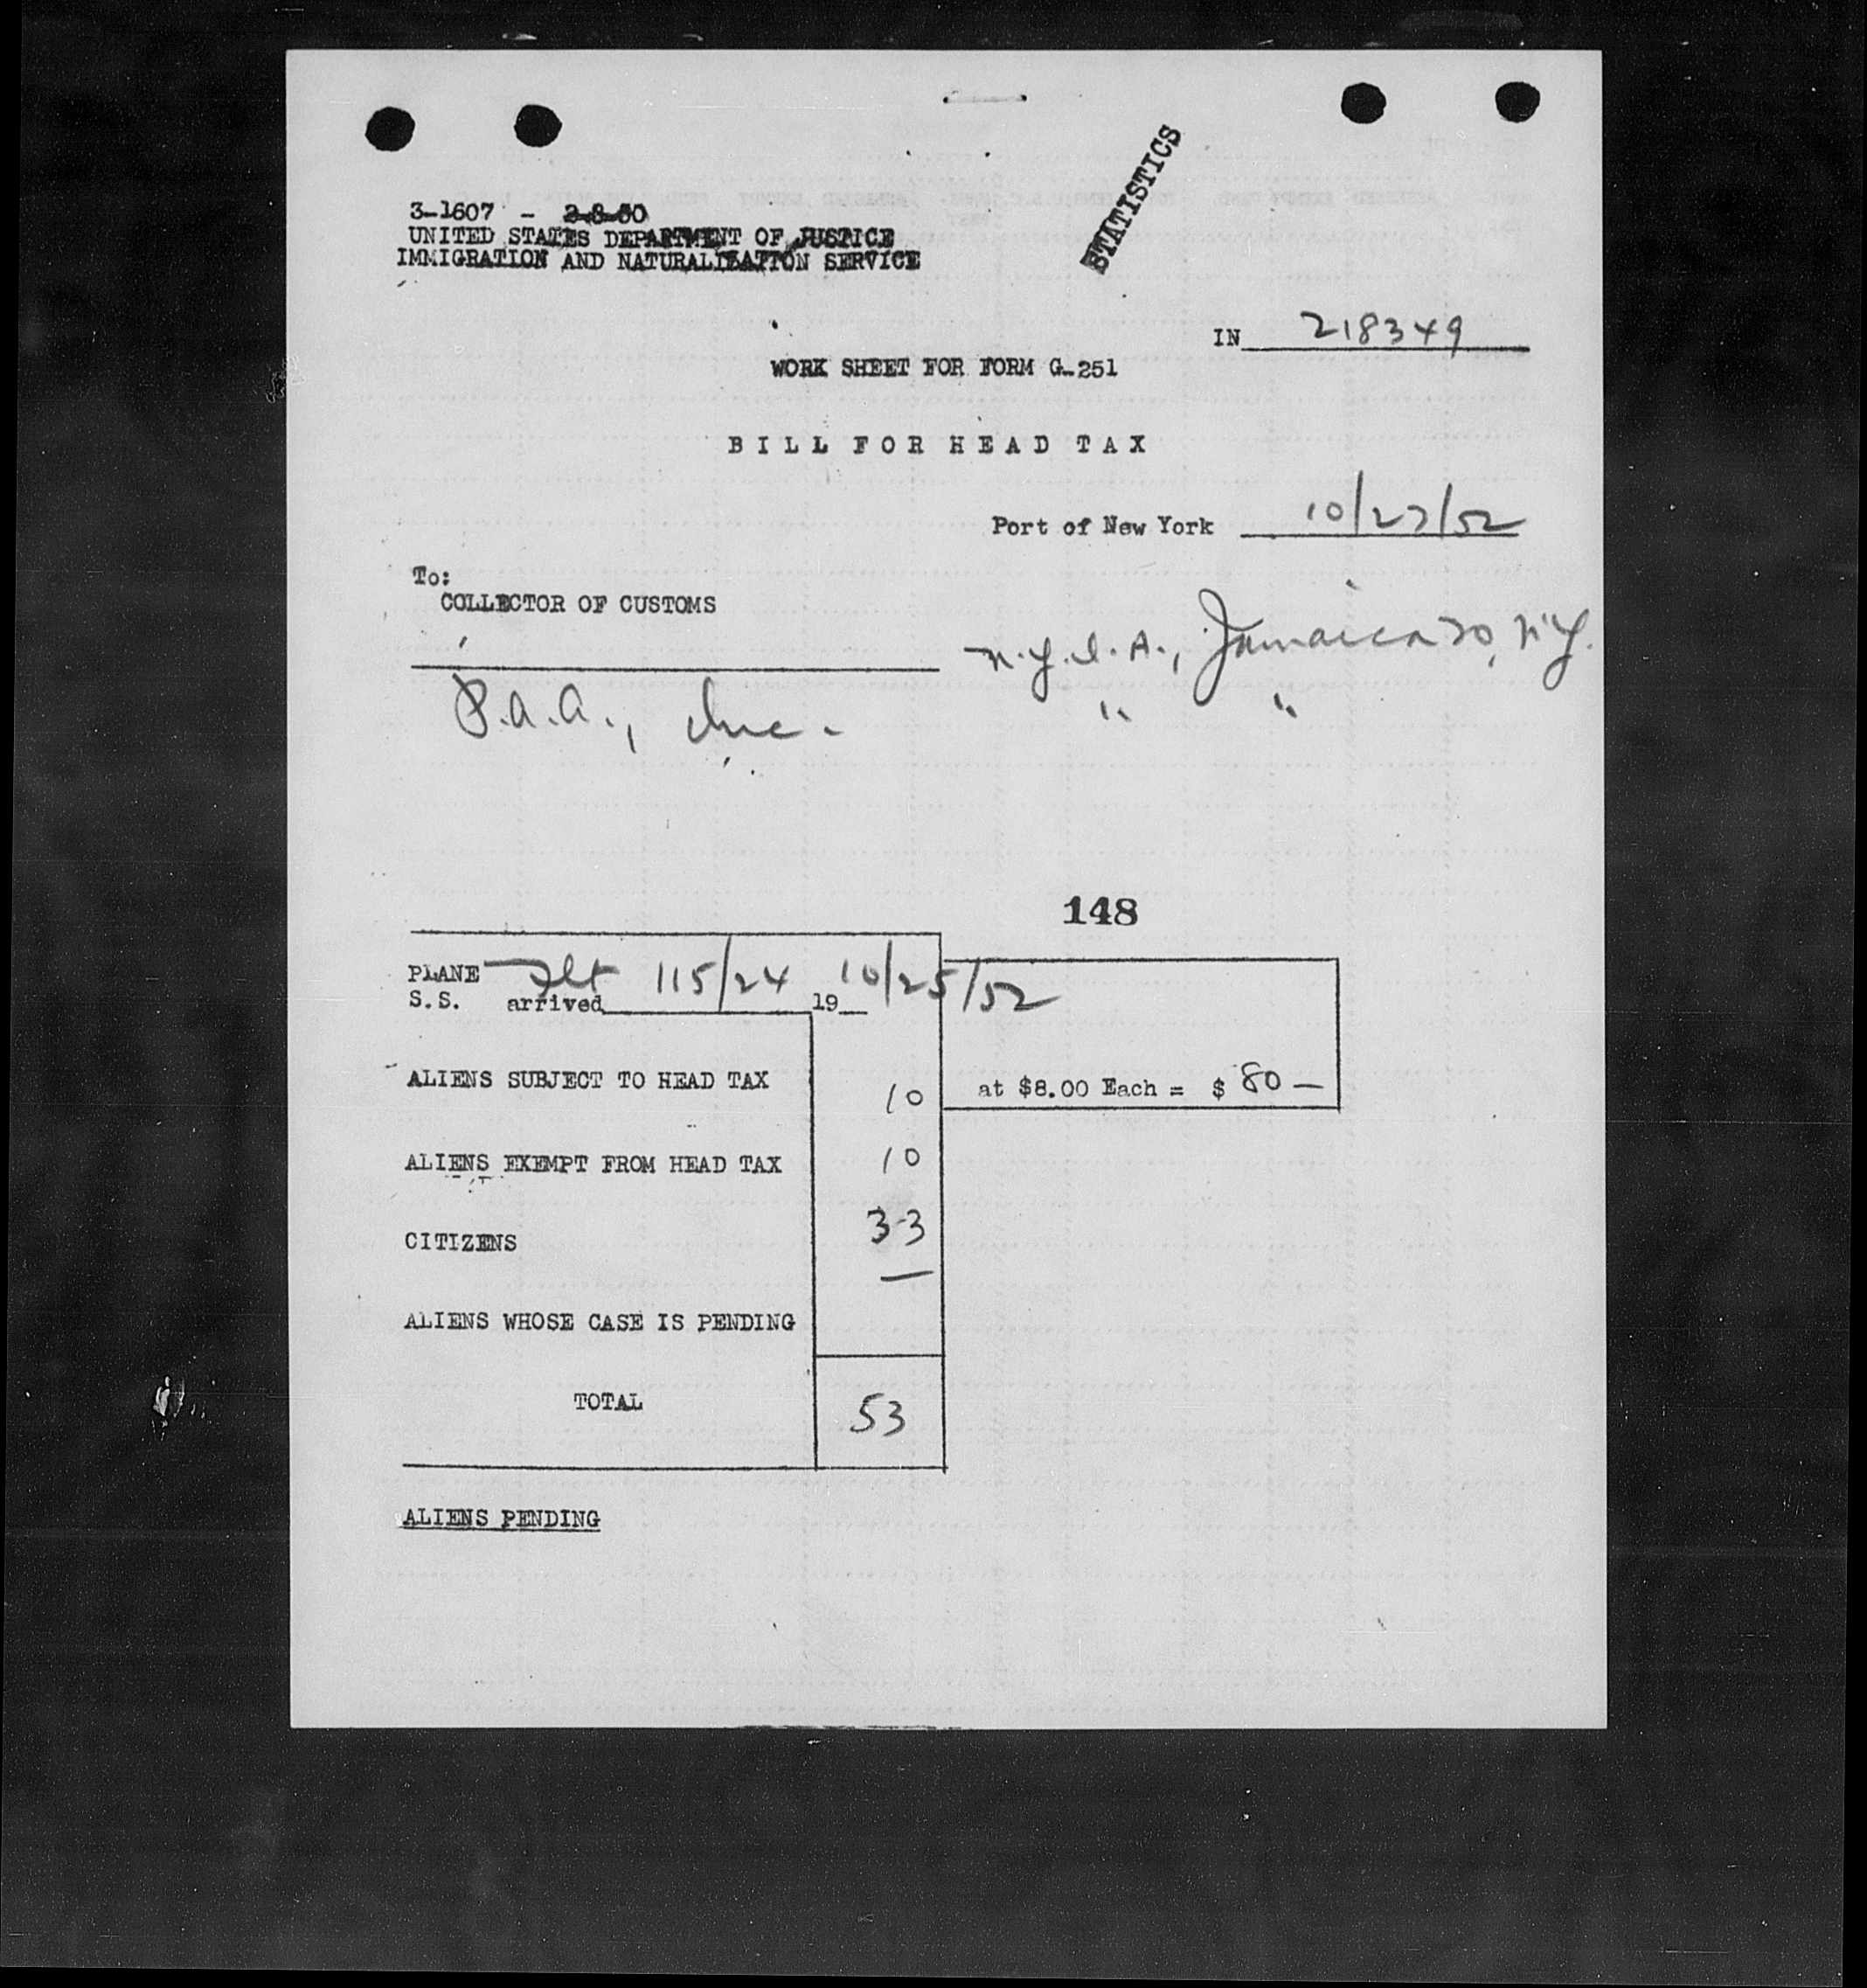 STATISTICS
3-1607 - 2-8-50
UNITED STATES DEPARTMENT OF JUSTICE
IMMIGRATION AND NATURALIZATION SERVICE
IN 218349
WORK SHEET FOR FORM G-251
BILL FOR HEAD TAX
Port of New York 10/27/52
To:
COLLECTOR OF CUSTOMS
N.Y.I.A., Jamaica 30, N.Y.
P.A.A., Inc. " "
148
PLANE Flt 115/24 10/25/52
S.S. arrived 19
ALIENS SUBJECT TO HEAD TAX 10 at $8.00 Each = $ 80 —
ALIENS EXEMPT FROM HEAD TAX 10
CITIZENS 33
ALIENS WHOSE CASE IS PENDING
TOTAL 53
ALIENS PENDING